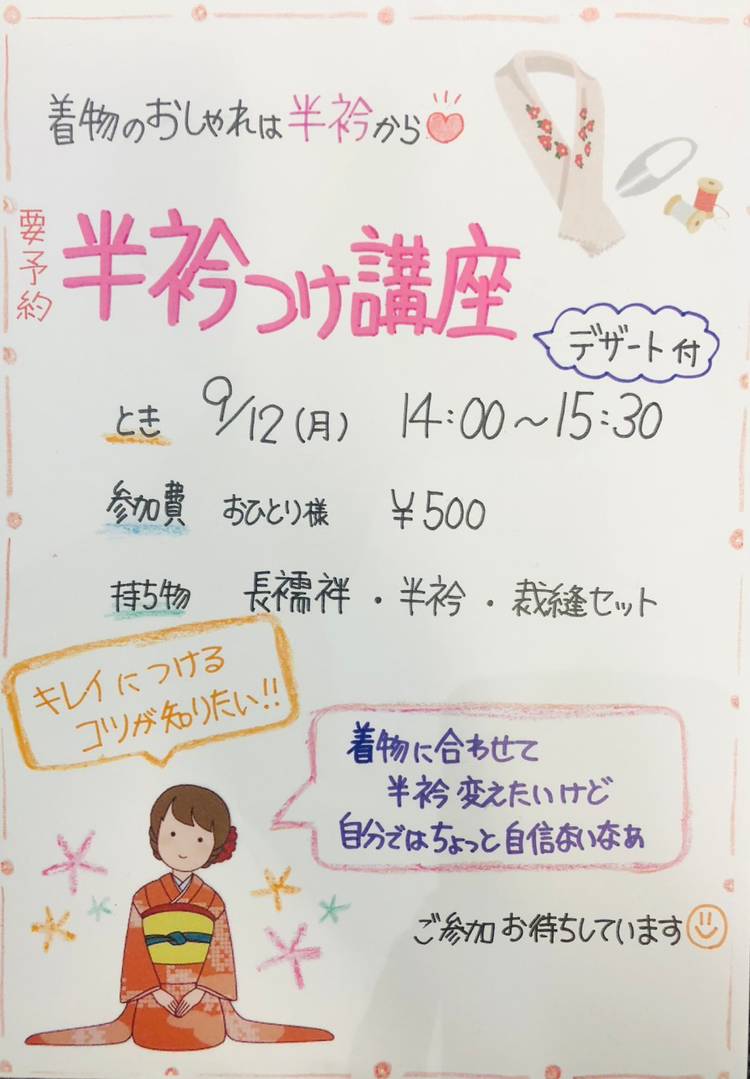 着物のおしゃれは半衿から
要予約
半衿つけ講座
デザート付
とき 9/12(月) 14:00～15:30
参加費 おひとり様 ¥500
持ち物 長襦袢・半衿・裁縫セット
キレイにつける
コツが知りたい!!
着物に合わせて
半衿変えたいけど
自分ではちょっと自信ないなぁ
ご参加お待ちしています